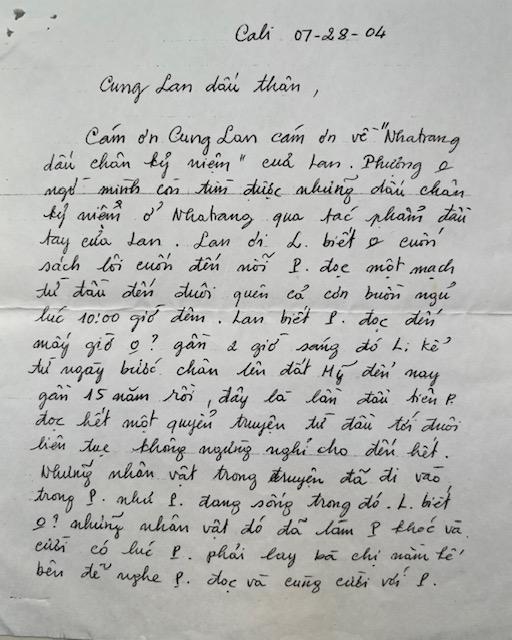 Cali 07-28-04
Cung Lan dấu thân,
Cám ơn Cung Lan cám ơn về "Nhatrang
dấu chân kỷ niệm" của Lan. Phượng o
ngờ mình còn tìm được những dấu chân
kỷ niệm ở Nhatrang qua tác phẩm đầu
tay của Lan. Lan ơi L. biết o cuốn
sách lôi cuốn đến nỗi P. đọc một mạch
từ đầu đến đuôi quên cả cơn buồn ngủ
lúc 10:00 giờ đêm. Lan biết P. đọc đến
mấy giờ o? gần 2 giờ sáng đó L. kể
từ ngày bước chân lên đất Mỹ đến nay
gần 15 năm rồi, đây là lần đầu tiên P.
đọc hết một quyển truyện từ đầu tới đuôi
liên tục không ngừng nghỉ cho đến hết.
Những nhân vật trong truyện đã đi vào
trong P. như P. đang sống trong đó. L. biết
o? những nhân vật đó đã làm P khóc và
cười có lúc P. phải lay bà chị nằm kế
bên để nghe P. đọc và cùng cười với P.